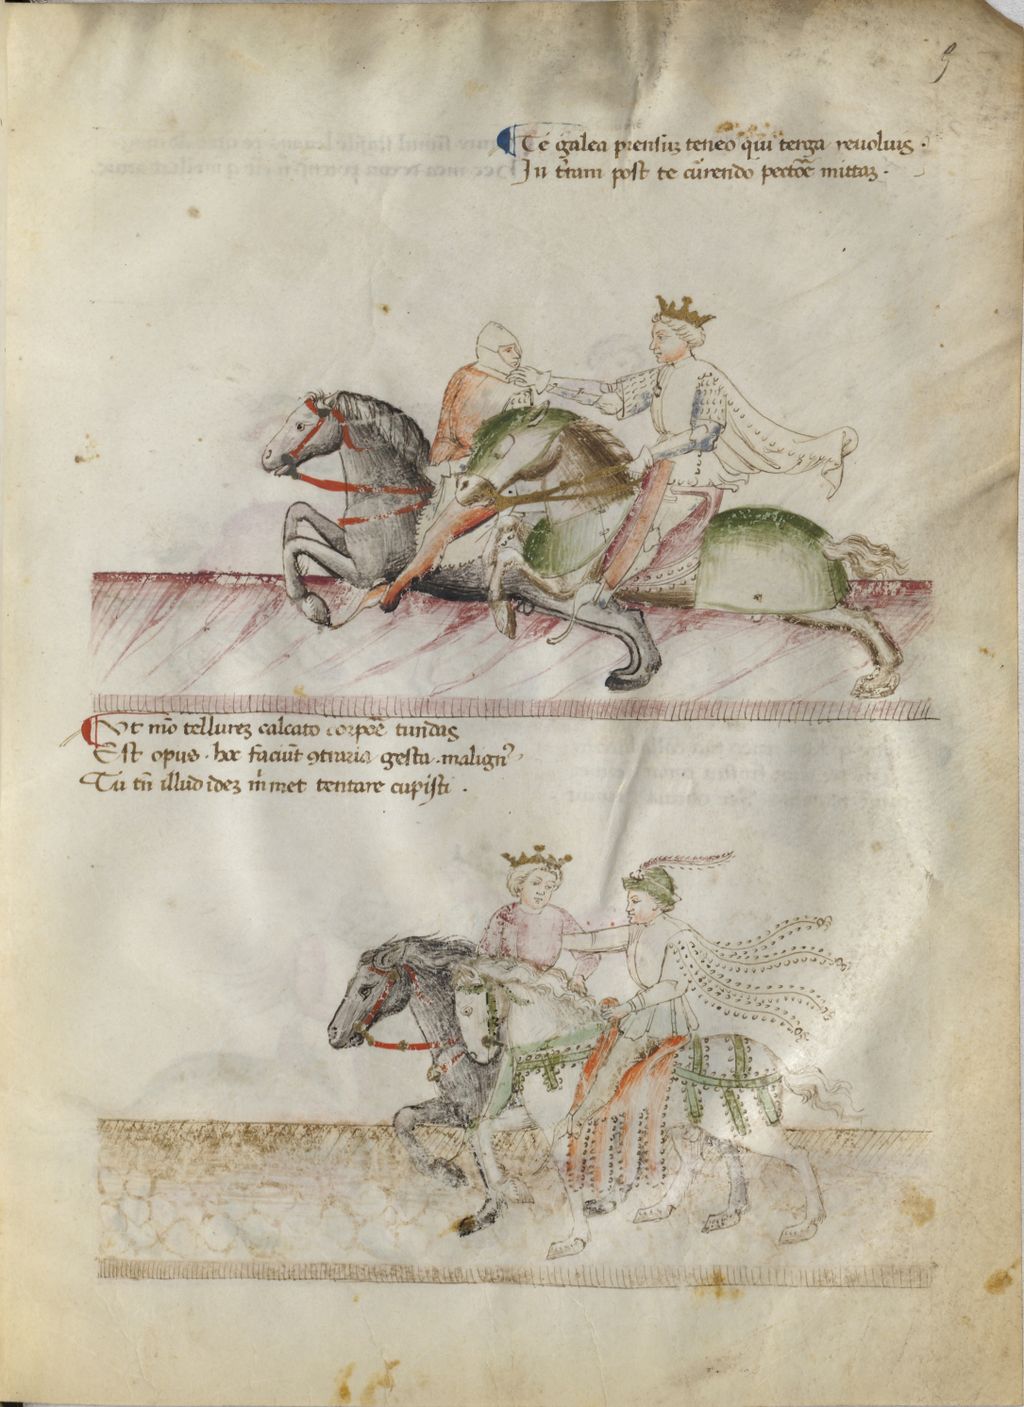 9
Te galea prensuꝫ teneo qui terga reuoluis ·
In t̄ram post te cūrendo pectore mittaꝫ ·
Ut mō tellureꝫ calcato corpore tundas
Est opus · hoc faciūt ꝯtraria gesta · maligni
Tu tn̄ illud ideꝫ m̄met tentare cupisti ·